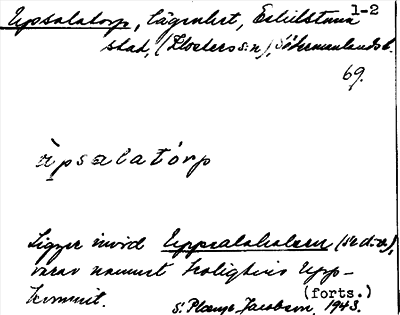 Upsalatorp, lägenhet, Eskilstuna 1-2
stad, (Klosters s:n), Södermanlands l.
69.
ùpsalatórp
Ligger invid Uppsalakalsen (se d.o.),
varav namnet troligtvis upp-
kommit. (forts.)
S. Jacobson. 1943.